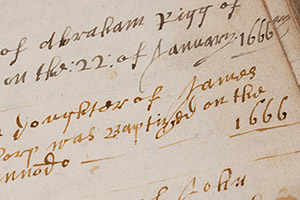 of Abraham Pigg of
on the: 22: of January 1666
Doughter of James
Corp was Baptized on the
1666
John